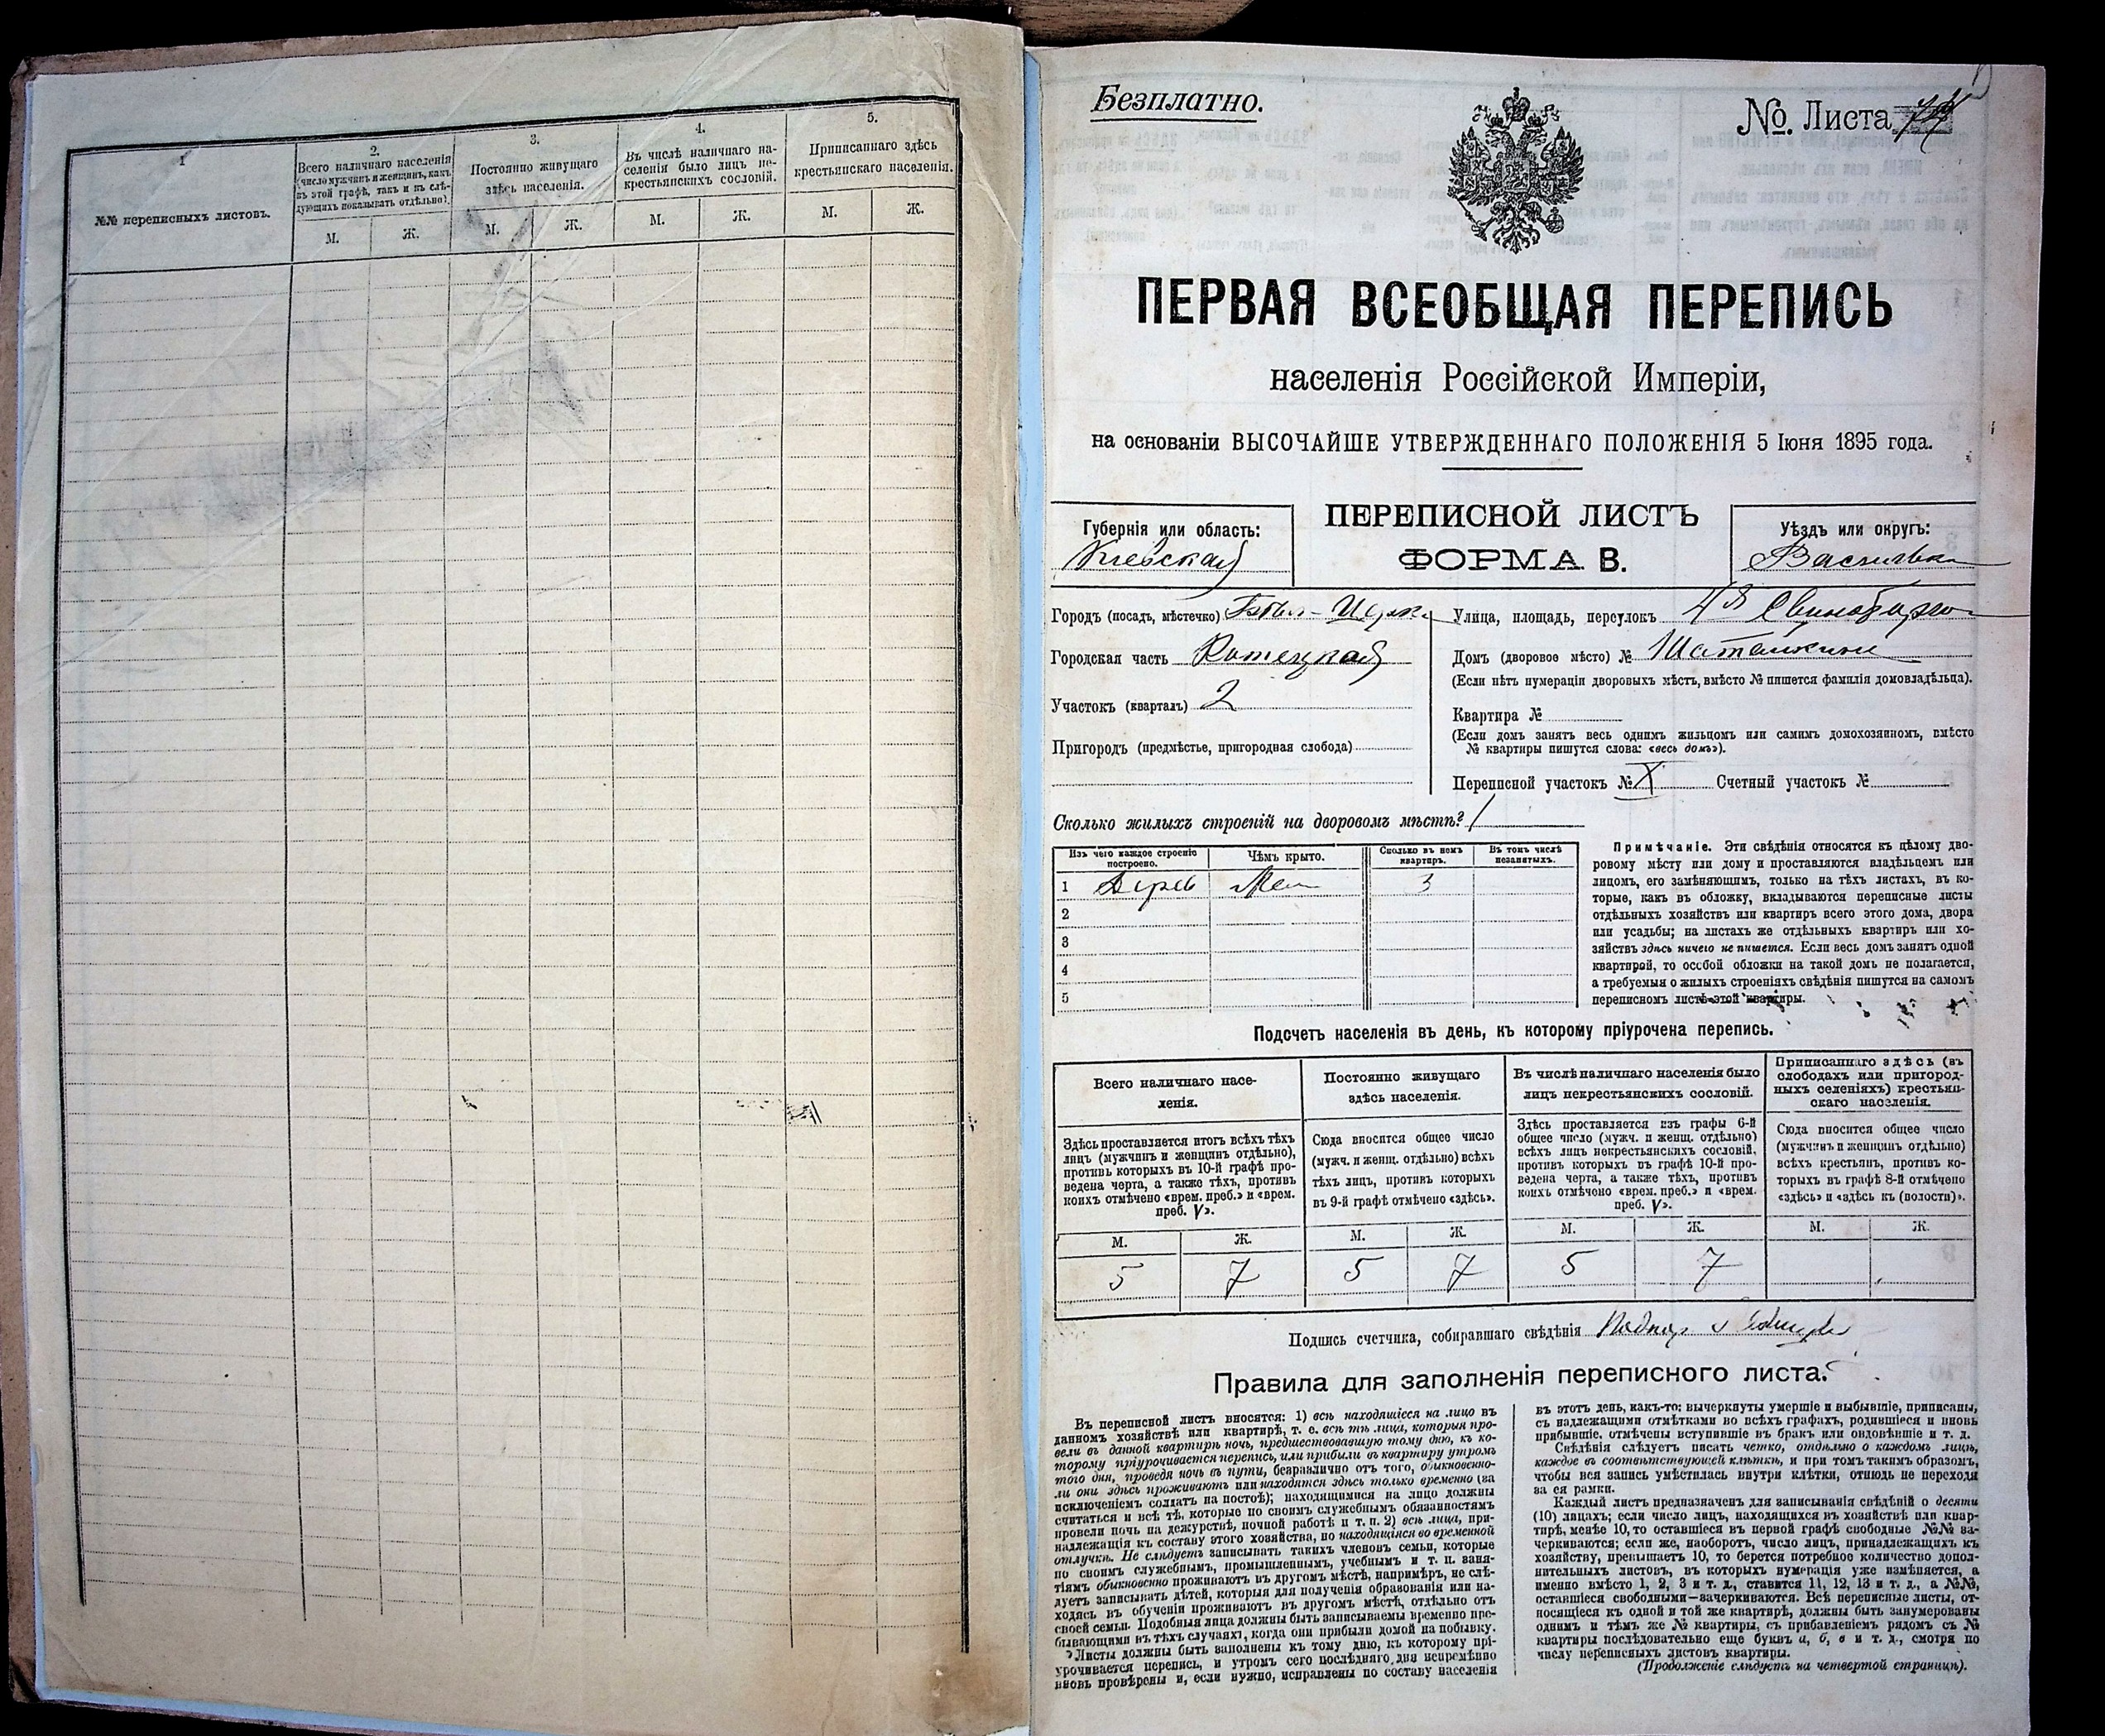 1
№№ переписныхъ листовъ.
2.
Всего наличнаго населенія
(число мужчинъ и женщинъ, какъ
въ этой графѣ, такъ и въ слѣ-
дующихъ показывать отдѣльно).
М.
Ж.
3.
Постоянно живущаго
здѣсь населенія.
М.
Ж.
4.
Въ числѣ наличнаго на-
селенія было лицъ не-
крестьянскихъ сословій.
М.
Ж.
5.
Приписаннаго здѣсь
крестьянскаго населенія.
М.
Ж.
Безплатно.
№. Листа
ПЕРВАЯ ВСЕОБЩАЯ ПЕРЕПИСЬ
населенія Россійской Имперіи,
на основаніи ВЫСОЧАЙШЕ УТВЕРЖДЕННАГО ПОЛОЖЕНІЯ 5 Іюня 1895 года.
Губернія или область:
Кіевская
ПЕРЕПИСНОЙ ЛИСТЪ
ФОРМА В.
Уѣздъ или округъ:
Васильк
Городъ (посадъ, мѣстечко) Бѣлая-Церк
Городская часть
Участокъ (кварталъ) 2
Пригородъ (предмѣстье, пригородная слобода)
Улица, площадь, переулокъ 4я
Домъ (дворовое мѣсто) №
(Если нѣтъ нумераціи дворовыхъ мѣстъ, вмѣсто № пишется фамилія домовладѣльца).
Квартира №
(Если домъ занятъ весь однимъ жильцомъ или самимъ домохозяиномъ, вмѣсто
№ квартиры пишутся слова: «весь домъ»).
Переписной участокъ № X Счетный участокъ №
Сколько жилыхъ строеній на дворовомъ мѣстѣ? 1
Изъ чего каждое строеніе
построено.
Чѣмъ крыто.
Сколько въ немъ
квартиръ.
Въ томъ числѣ
незанятыхъ.
1 Дерев 3
2
3
4
5
Примѣчаніе. Эти свѣдѣнія относятся къ цѣлому дво-
ровому мѣсту или дому и проставляются владѣльцемъ или
лицомъ, его замѣняющимъ, только на тѣхъ листахъ, въ ко-
торые, какъ въ обложку, вкладываются переписные листы
отдѣльныхъ хозяйствъ или квартиръ всего этого дома, двора
или усадьбы; на листахъ же отдѣльныхъ квартиръ или хо-
зяйствъ здѣсь ничего не пишется. Если весь домъ занятъ одной
квартирой, то особой обложки на такой домъ не полагается,
а требуемыя о жилыхъ строеніяхъ свѣдѣнія пишутся на самомъ
переписномъ листѣ этой квартиры.
Подсчетъ населенія въ день, къ которому пріурочена перепись.
Всего наличнаго насе-
ленія.
Здѣсь проставляется итогъ всѣхъ тѣхъ
лицъ (мужчинъ и женщинъ отдѣльно),
противъ которыхъ въ 10-й графѣ про-
ведена черта, а также тѣхъ, противъ
коихъ отмѣчено «врем. преб.» и «врем.
преб. V».
М.
Ж.
5
7
Постоянно живущаго
здѣсь населенія.
Сюда вносится общее число
(мужч. и женщ. отдѣльно) всѣхъ
тѣхъ лицъ, противъ которыхъ
въ 9-й графѣ отмѣчено «здѣсь».
М.
Ж.
5
7
Въ числѣ наличнаго населенія было
лицъ некрестьянскихъ сословій.
Здѣсь проставляется изъ графы 6-й
общее число (мужч. и женщ. отдѣльно)
всѣхъ лицъ некрестьянскихъ сословій,
противъ которыхъ въ графѣ 10-й про-
ведена черта, а также тѣхъ, противъ
коихъ отмѣчено «врем. преб.» и «врем.
преб. V».
М.
Ж.
5
7
Приписаннаго здѣсь (въ
слободахъ или пригород-
ныхъ селеніяхъ) крестьян-
скаго населенія.
Сюда вносится общее число
(мужчинъ и женщинъ отдѣльно)
всѣхъ крестьянъ, противъ ко-
торыхъ въ графѣ 8-й отмѣчено
«здѣсь» и «здѣсь къ (волости)».
М.
Ж.
Подпись счетчика, собиравшаго свѣдѣнія
Правила для заполненія переписного листа.
Въ переписной листъ вносятся: 1) всѣ находящіеся на лицо въ
данномъ хозяйствѣ или квартирѣ, т. е. всѣ тѣ лица, которыя про-
вели въ данной квартирѣ ночь, предшествовавшую тому дню, къ ко-
торому пріурочивается перепись, или прибыли въ квартиру утромъ
того дня, проведя ночь въ пути, безразлично отъ того, обыкновенно-
ли они здѣсь проживаютъ или находятся здѣсь только временно (за
исключеніемъ солдатъ на постоѣ); находящимися на лицо должны
считаться и всѣ тѣ, которые по своимъ служебнымъ обязанностямъ
провели ночь на дежурствѣ, ночной работѣ и т. п. 2) всѣ лица, при-
надлежащія къ составу этого хозяйства, но находящіяся во временной
отлучкѣ. Не слѣдуетъ записывать такихъ членовъ семьи, которые
по своимъ служебнымъ, промышленнымъ, учебнымъ и т. п. заня-
тіямъ обыкновенно проживаютъ въ другомъ мѣстѣ, напримѣръ, не слѣ-
дуетъ записывать дѣтей, которыя для полученія образованія или на-
ходясь въ обученіи проживаютъ въ другомъ мѣстѣ, отдѣльно отъ
своей семьи. Подобныя лица должны быть записываемы временно пре-
бывающими въ тѣхъ случаяхъ, когда они прибыли домой на побывку.
Листы должны быть заполнены къ тому дню, къ которому прі-
урочивается перепись, и утромъ сего послѣдняго дня непремѣнно
вновь провѣрены и, если нужно, исправлены по составу населенія
въ этотъ день, какъ-то: вычеркнуты умершіе и выбывшіе, приписаны,
съ надлежащими отмѣтками во всѣхъ графахъ, родившіеся и вновь
прибывшіе, отмѣчены вступившіе въ бракъ или овдовѣвшіе и т. д.
Свѣдѣнія слѣдуетъ писать четко, отдѣльно о каждомъ лицѣ,
каждое въ соотвѣтствующей клѣткѣ, и при томъ такимъ образомъ,
чтобы вся запись умѣстилась внутри клѣтки, отнюдь не переходя
за ея рамки.
Каждый листъ предназначенъ для записыванія свѣдѣній о десяти
(10) лицахъ; если число лицъ, находящихся въ хозяйствѣ или квар-
тирѣ, менѣе 10, то оставшіеся въ первой графѣ свободные №№ за-
черкиваются; если же, наоборотъ, число лицъ, принадлежащихъ къ
хозяйству, превышаетъ 10, то берется потребное количество допол-
нительныхъ листовъ, въ которыхъ нумерація уже измѣняется, а
именно вмѣсто 1, 2, 3 и т. д., ставится 11, 12, 13 и т. д., а №№,
оставшіеся свободными—зачеркиваются. Всѣ переписные листы, от-
носящіеся къ одной и той же квартирѣ, должны быть занумерованы
однимъ и тѣмъ же № квартиры, съ прибавленіемъ рядомъ съ №
квартиры послѣдовательно еще буквъ а, б, в и т. д., смотря по
числу переписныхъ листовъ квартиры.
(Продолженіе слѣдуетъ на четвертой страницѣ).